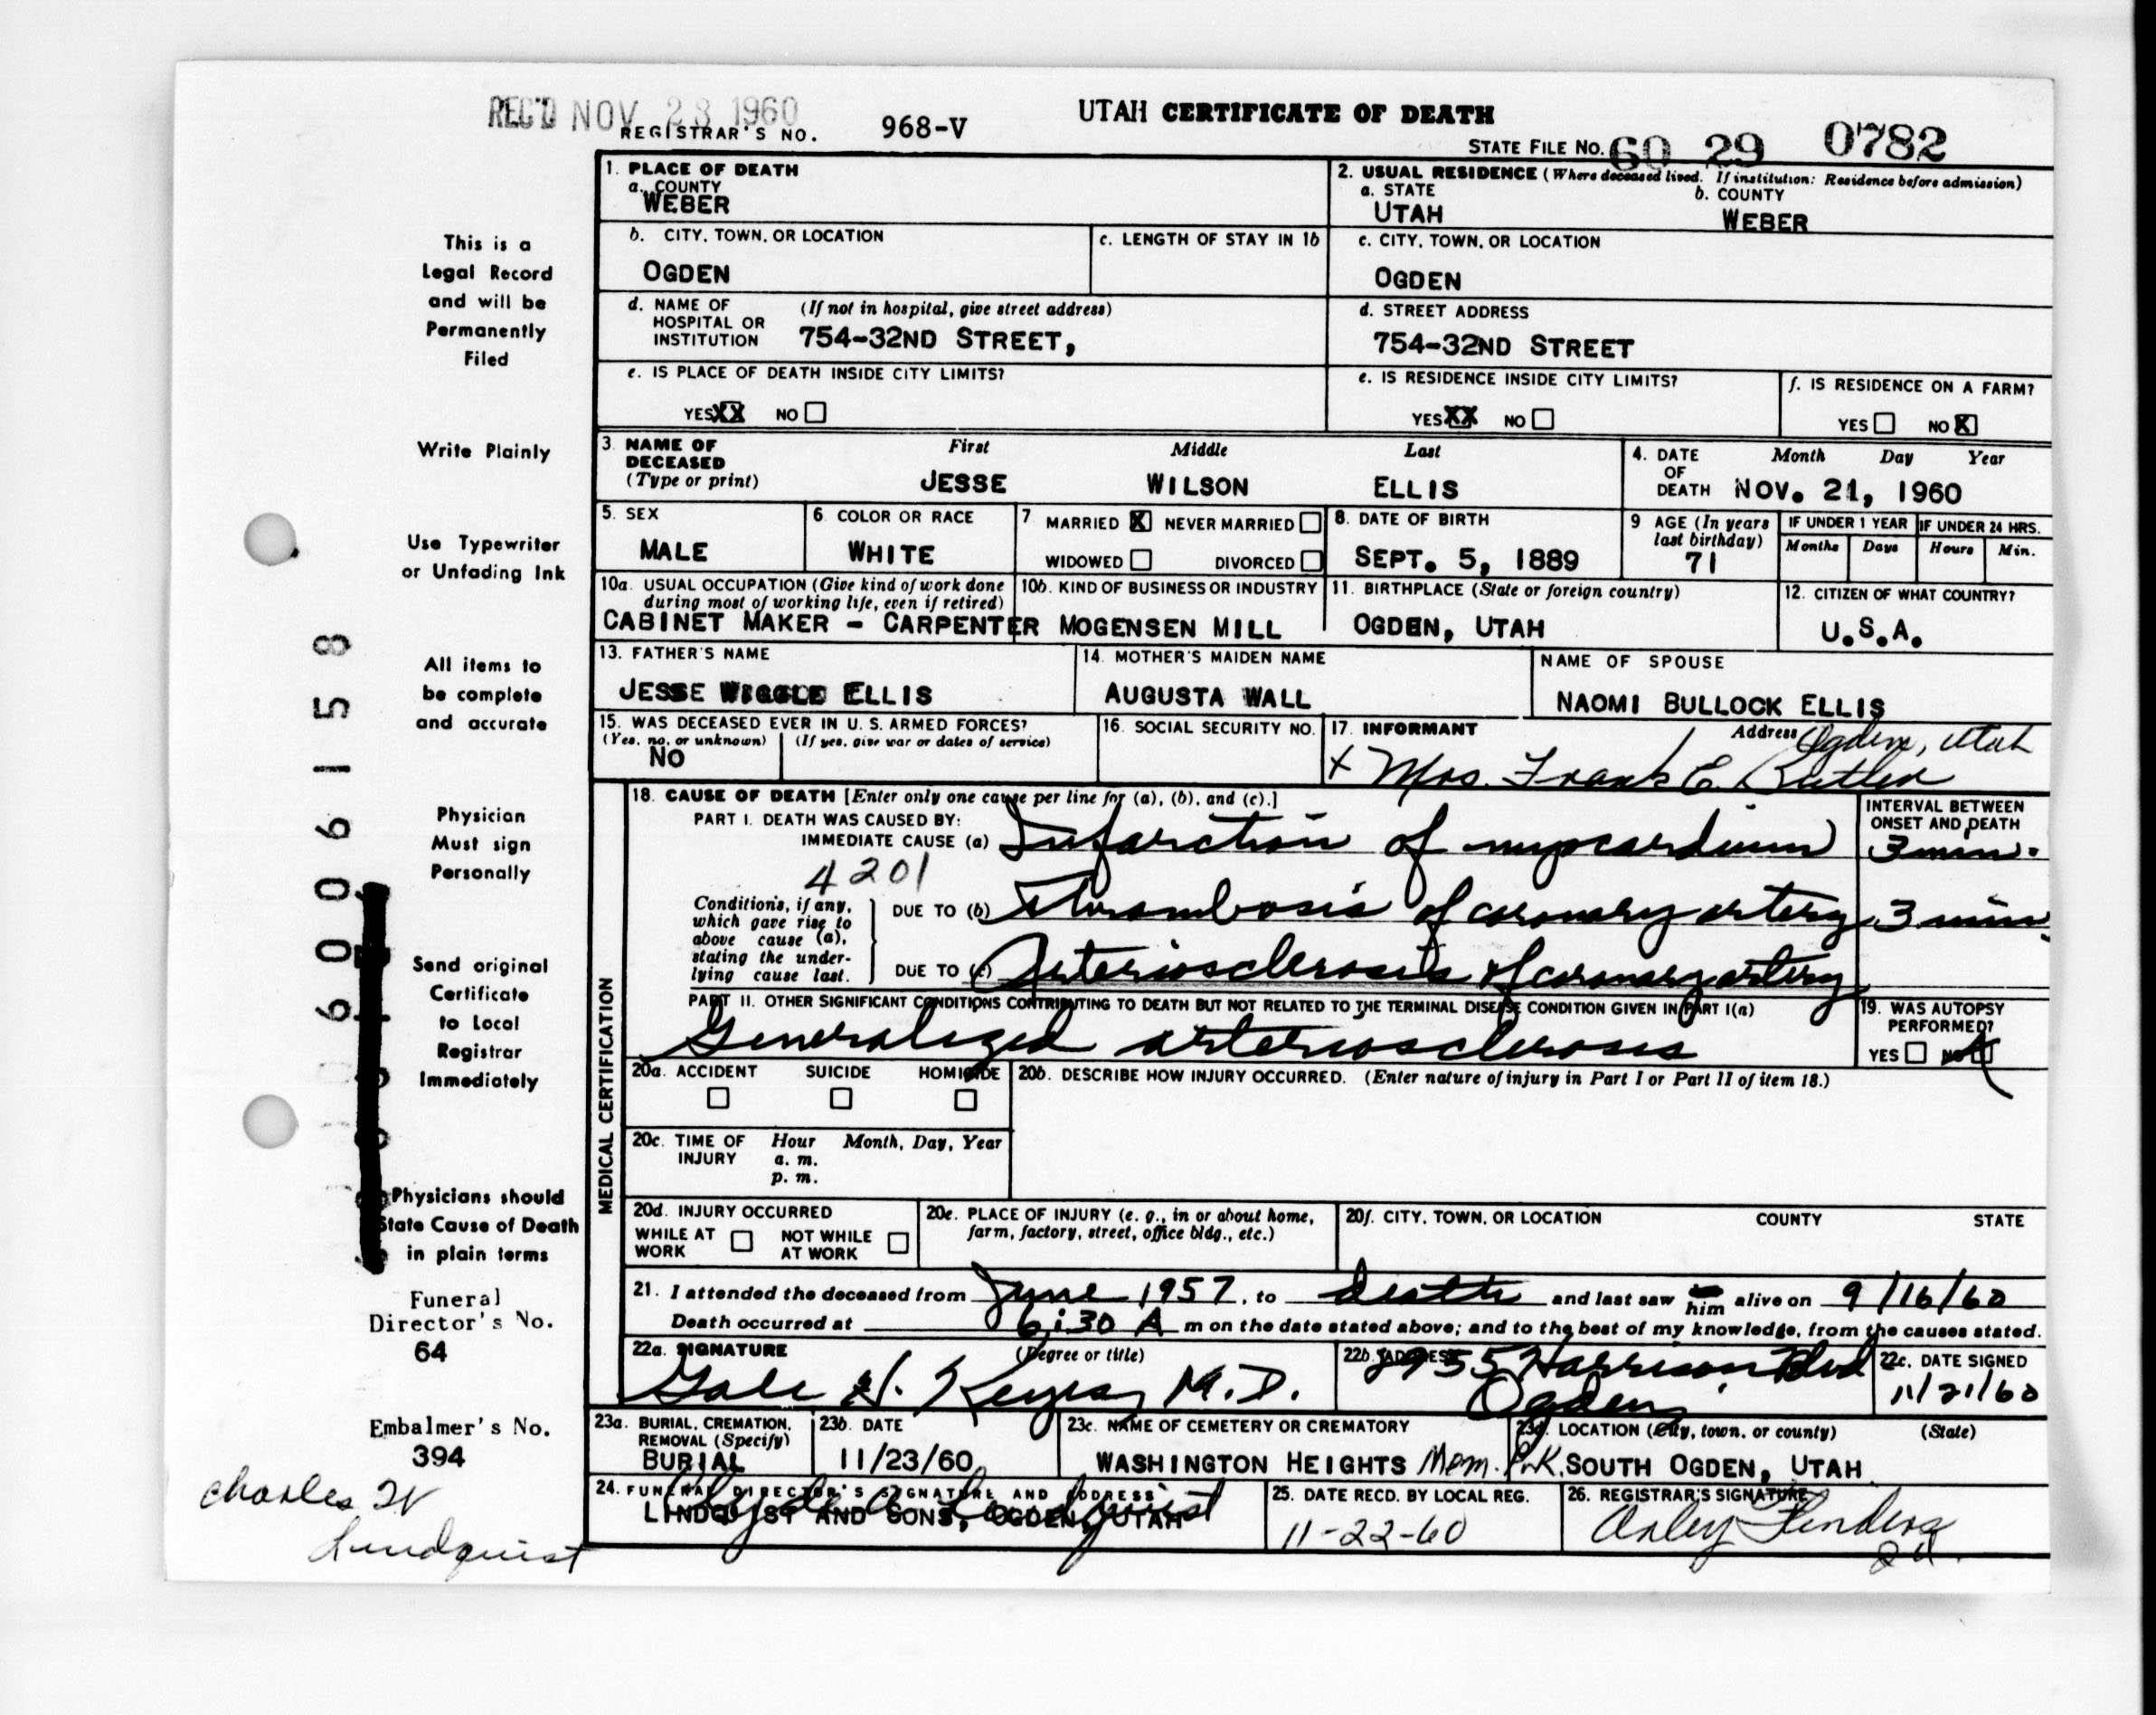 REC'D NOV 23 1960
UTAH CERTIFICATE OF DEATH
REGISTRAR'S NO. 968-V
STATE FILE NO. 60 29 0782
1. PLACE OF DEATH
a. COUNTY
WEBER
2. USUAL RESIDENCE (Where deceased lived. If institution: Residence before admission)
a. STATE b. COUNTY
UTAH WEBER
b. CITY, TOWN, OR LOCATION
OGDEN
c. LENGTH OF STAY IN 1b
c. CITY, TOWN, OR LOCATION
OGDEN
d. NAME OF HOSPITAL OR INSTITUTION (If not in hospital, give street address)
754-32ND STREET,
d. STREET ADDRESS
754-32ND STREET
e. IS PLACE OF DEATH INSIDE CITY LIMITS?
YES XX NO
e. IS RESIDENCE INSIDE CITY LIMITS?
YES XX NO
f. IS RESIDENCE ON A FARM?
YES NO X
3. NAME OF DECEASED (Type or print)
First Middle Last
JESSE WILSON ELLIS
4. DATE OF DEATH
Month Day Year
NOV. 21, 1960
5. SEX
MALE
6. COLOR OR RACE
WHITE
7 MARRIED X NEVER MARRIED
WIDOWED DIVORCED
8. DATE OF BIRTH
SEPT. 5, 1889
9 AGE (In years last birthday)
71
IF UNDER 1 YEAR IF UNDER 24 HRS.
Months Days Hours Min.
10a. USUAL OCCUPATION (Give kind of work done during most of working life, even if retired)
CABINET MAKER - CARPENTER
10b. KIND OF BUSINESS OR INDUSTRY
MOGENSEN MILL
11. BIRTHPLACE (State or foreign country)
OGDEN, UTAH
12. CITIZEN OF WHAT COUNTRY?
U.S.A.
13. FATHER'S NAME
JESSE ELLIS
14. MOTHER'S MAIDEN NAME
AUGUSTA WALL
NAME OF SPOUSE
NAOMI BULLOCK ELLIS
15. WAS DECEASED EVER IN U. S. ARMED FORCES?
(Yes, no, or unknown) (If yes, give war or dates of service)
NO
16. SOCIAL SECURITY NO.
17. INFORMANT Address Ogden, Utah
x Mrs. Frank E. Butler
MEDICAL CERTIFICATION
18. CAUSE OF DEATH [Enter only one cause per line for (a), (b), and (c).]
PART I. DEATH WAS CAUSED BY:
IMMEDIATE CAUSE (a) Infarction of myocardium
INTERVAL BETWEEN ONSET AND DEATH
3 min.
4201
Conditions, if any, which gave rise to above cause (a), stating the underlying cause last.
DUE TO (b) Thrombosis of coronary artery 3 min.
DUE TO (c) Arteriosclerosis of coronary artery
PART II. OTHER SIGNIFICANT CONDITIONS CONTRIBUTING TO DEATH BUT NOT RELATED TO THE TERMINAL DISEASE CONDITION GIVEN IN PART I(a)
Generalized arteriosclerosis
19. WAS AUTOPSY PERFORMED?
YES NO
20a. ACCIDENT SUICIDE HOMICIDE
20b. DESCRIBE HOW INJURY OCCURRED. (Enter nature of injury in Part I or Part II of item 18.)
20c. TIME OF INJURY Hour Month, Day, Year
a. m.
p. m.
20d. INJURY OCCURRED
WHILE AT WORK NOT WHILE AT WORK
20e. PLACE OF INJURY (e. g., in or about home, farm, factory, street, office bldg., etc.)
20f. CITY, TOWN, OR LOCATION COUNTY STATE
21. I attended the deceased from June 1957, to death and last saw him alive on 9/16/60
Death occurred at 6:30 A m on the date stated above; and to the best of my knowledge, from the causes stated.
22a. SIGNATURE (Degree or title)
Gale H. Keyes M.D.
22b. ADDRESS
Harrison Blvd
Ogden
22c. DATE SIGNED
11/21/60
23a. BURIAL, CREMATION, REMOVAL (Specify)
BURIAL
23b. DATE
11/23/60
23c. NAME OF CEMETERY OR CREMATORY
WASHINGTON HEIGHTS Mem. Prk.
23d. LOCATION (City, town, or county) (State)
SOUTH OGDEN, UTAH
24. FUNERAL DIRECTOR'S SIGNATURE AND ADDRESS
Clyde A. Lindquist
LINDQUIST AND SONS, OGDEN, UTAH
25. DATE RECD. BY LOCAL REG.
11-22-60
26. REGISTRAR'S SIGNATURE
This is a
Legal Record
and will be
Permanently
Filed
Write Plainly
Use Typewriter
or Unfading Ink
All items to
be complete
and accurate
Physician
Must sign
Personally
Send original
Certificate
to Local
Registrar
Immediately
Physicians should
State Cause of Death
in plain terms
Funeral
Director's No.
64
Embalmer's No.
394
Charles W
Lindquist
6006158